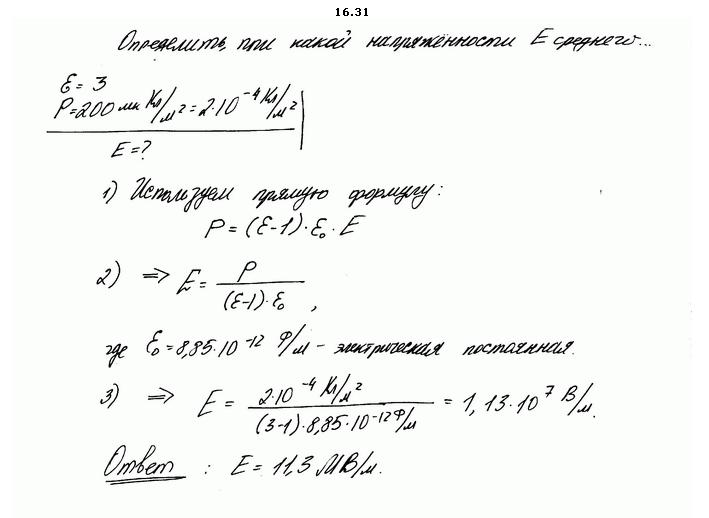 16.31
Определить, при какой напряжённости E среднего...
ε = 3
P = 200 мкКл/м² = 2·10⁻⁴ Кл/м²
E = ?
1) Используем прямую формулу:
P = (ε-1)·ε₀·E
2) ⇒ E = P / ((ε-1)·ε₀),
где ε₀ = 8,85·10⁻¹² Ф/м - электрическая постоянная.
3) ⇒ E = 2·10⁻⁴ Кл/м² / ((3-1)·8,85·10⁻¹² Ф/м) = 1,13·10⁷ В/м.
Ответ: E = 11,3 МВ/м.